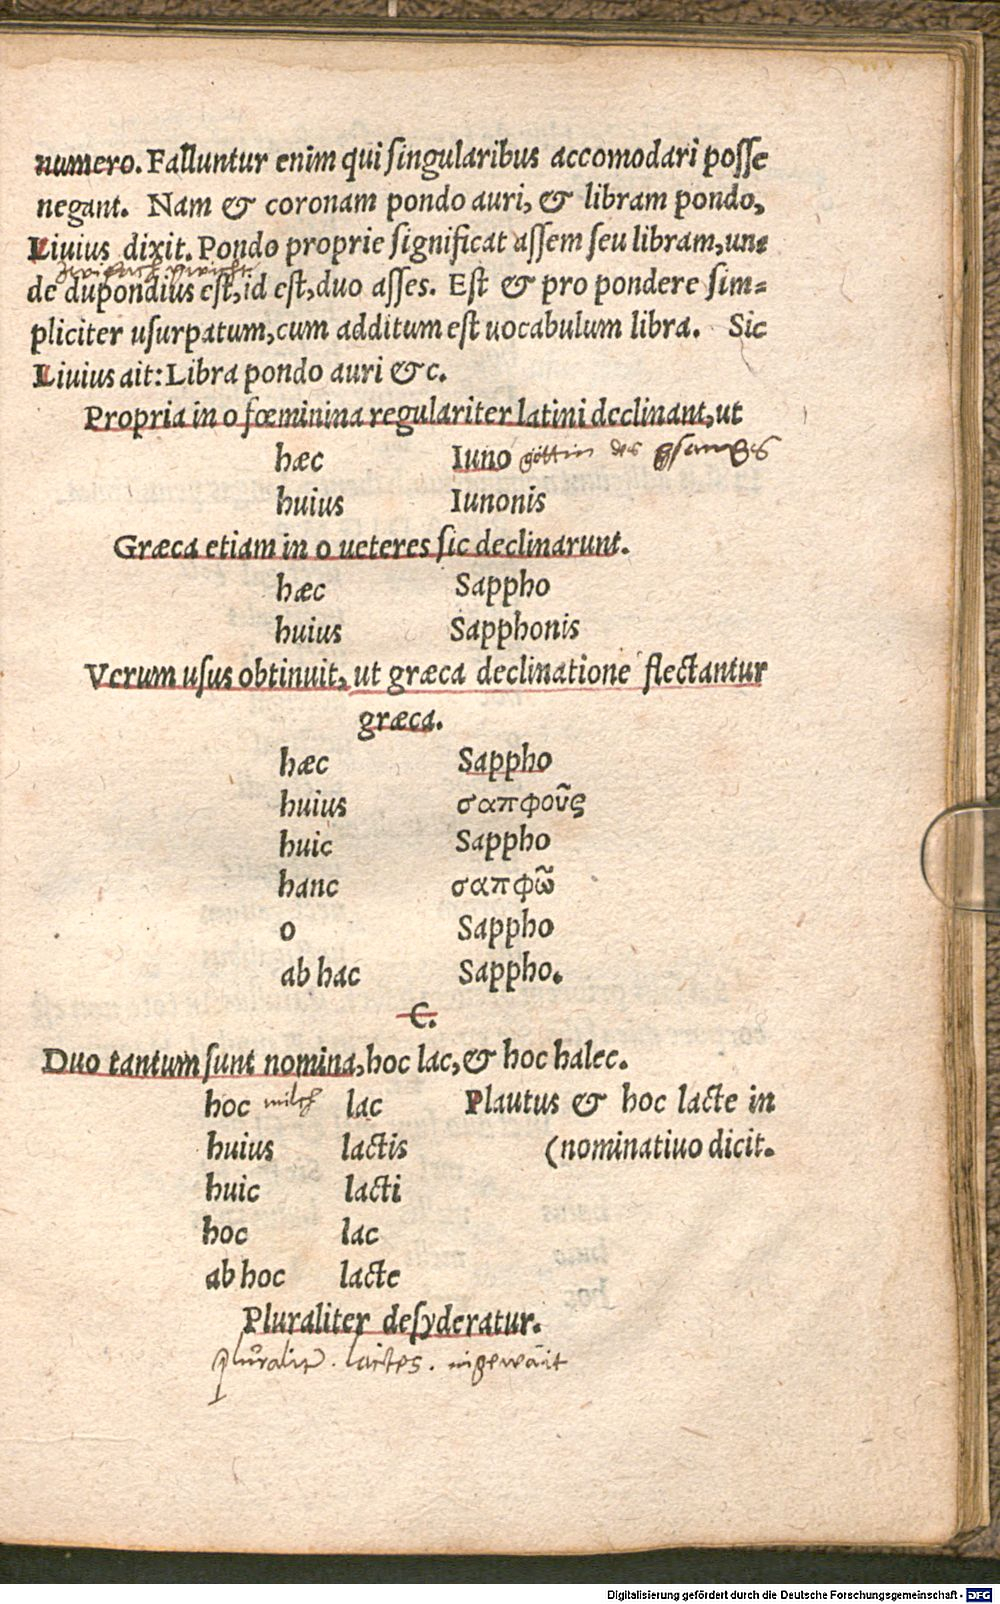 numero. Falluntur enim qui singularibus accomodari posse
negant. Nam & coronam pondo auri, & libram pondo,
Liuius dixit. Pondo proprie significat assem seu libram, un=
de dupondius est, id est, duo asses. Est & pro pondere sim=
pliciter usurpatum, cum additum est uocabulum libra. Sic
Liuius ait: Libra pondo auri &c.
Propria in o fœminina regulariter latini declinant, ut
hæc Iuno göttin des gsanges
huius Iunonis
Græca etiam in o ueteres sic declinarunt.
hæc Sappho
huius Sapphonis
Verum usus obtinuit, ut græca declinatione flectantur
græca.
hæc Sappho
huius σαπφοῦς
huic Sappho
hanc σαπφῶ
o Sappho
ab hac Sappho.
C.
Duo tantum sunt nomina, hoc lac, & hoc halec.
hoc milch lac Plautus & hoc lacte in
huius lactis (nominatiuo dicit.
huic lacti
hoc lac
ab hoc lacte
Pluraliter desyderatur.
lactes.
Digitalisierung gefördert durch die Deutsche Forschungsgemeinschaft - DFG